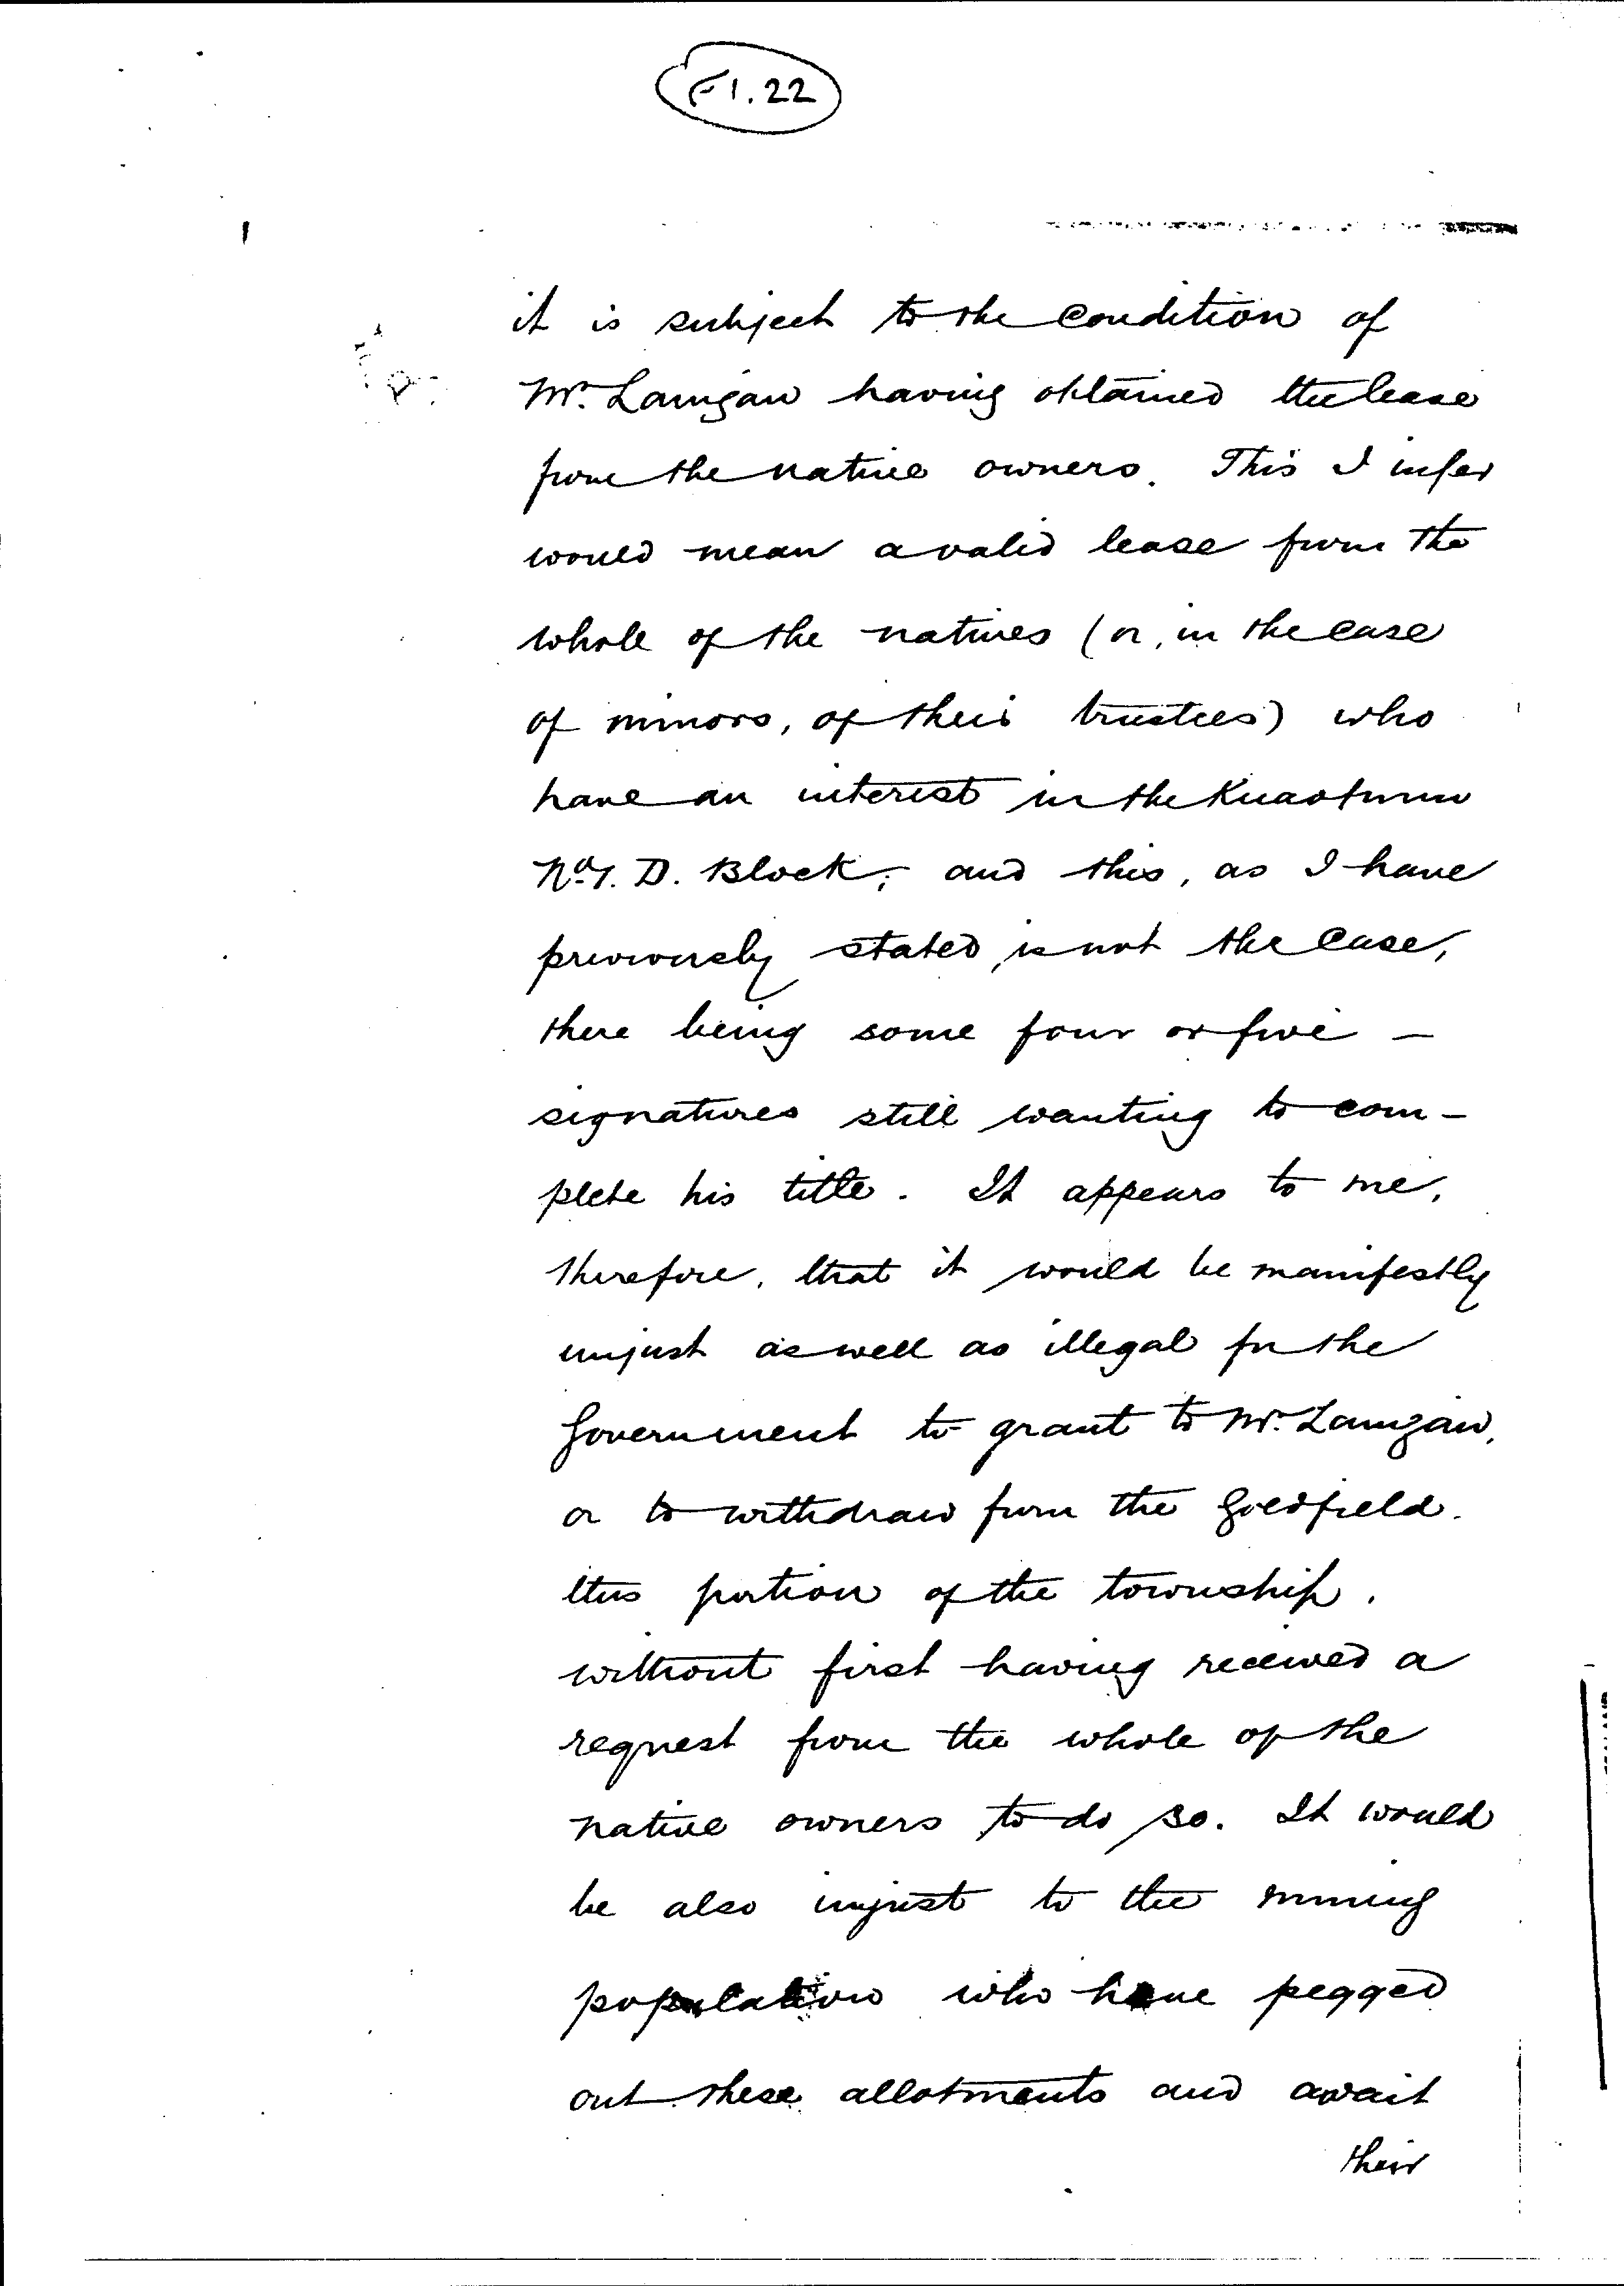 F1.22
it is subject to the condition of
Mr. Lanigan having obtained the lease
from the native owners. This I infer
would mean a valid lease from the
whole of the natives (or, in the case
of minors, of their trustees) who
have an interest in the Kuaotunu
No. 1. D. Block; and this, as I have
previously stated, is not the case,
there being some four or five –
signatures still wanting to com-
plete his title. It appears to me,
therefore, that it would be manifestly
unjust as well as illegal for the
Government to grant to Mr. Lanigan,
or to withdraw from the Goldfield.
this portion of the township,
without first having received a
request from the whole of the
native owners to do so. It would
be also unjust to the mining
population who have pegged
out these allotments and await
their